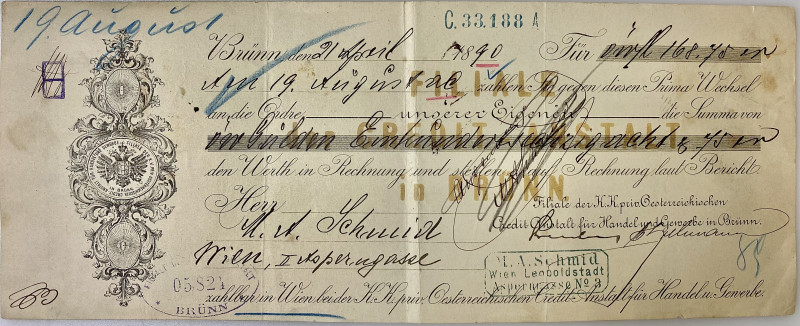 19. August
C.33.188 A
Brünn den 21 April 1890 Für 168.75
Am 19. August zahlen Sie gegen diesen Prima Wechsel
an die Ordre unserer Eigenen die Summa von
Gulden Einhundertsechzigacht 75
den Werth in Rechnung und stellen ihn auf Rechnung laut Bericht.
FILIALE
CREDIT-ANSTALT
in BRÜNN.
Herr
M. A. Schmid
Wien, II Asperngasse
Filiale der K.K. priv. Oesterreichischen
Credit-Anstalt für Handel und Gewerbe in Brünn.
M. A. Schmid
Wien Leopoldstadt
Asperngasse No. 3
05824
BRÜNN
zahlbar in Wien bei der K.K. priv. Oesterreichischen Credit-Anstalt für Handel u. Gewerbe.